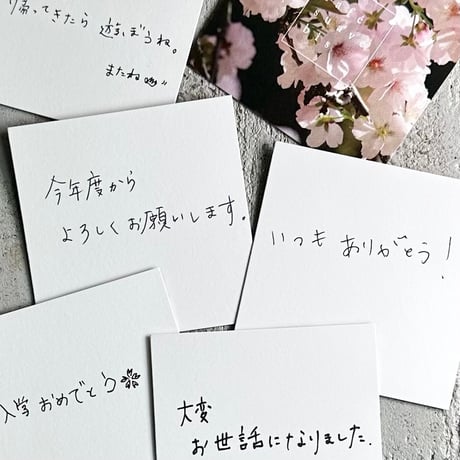 帰ってきたら 遊ぼうね。
またね
今年度から
よろしくお願いします。
いつも ありがとう!
入学おめでとう
大変
お世話になりました.